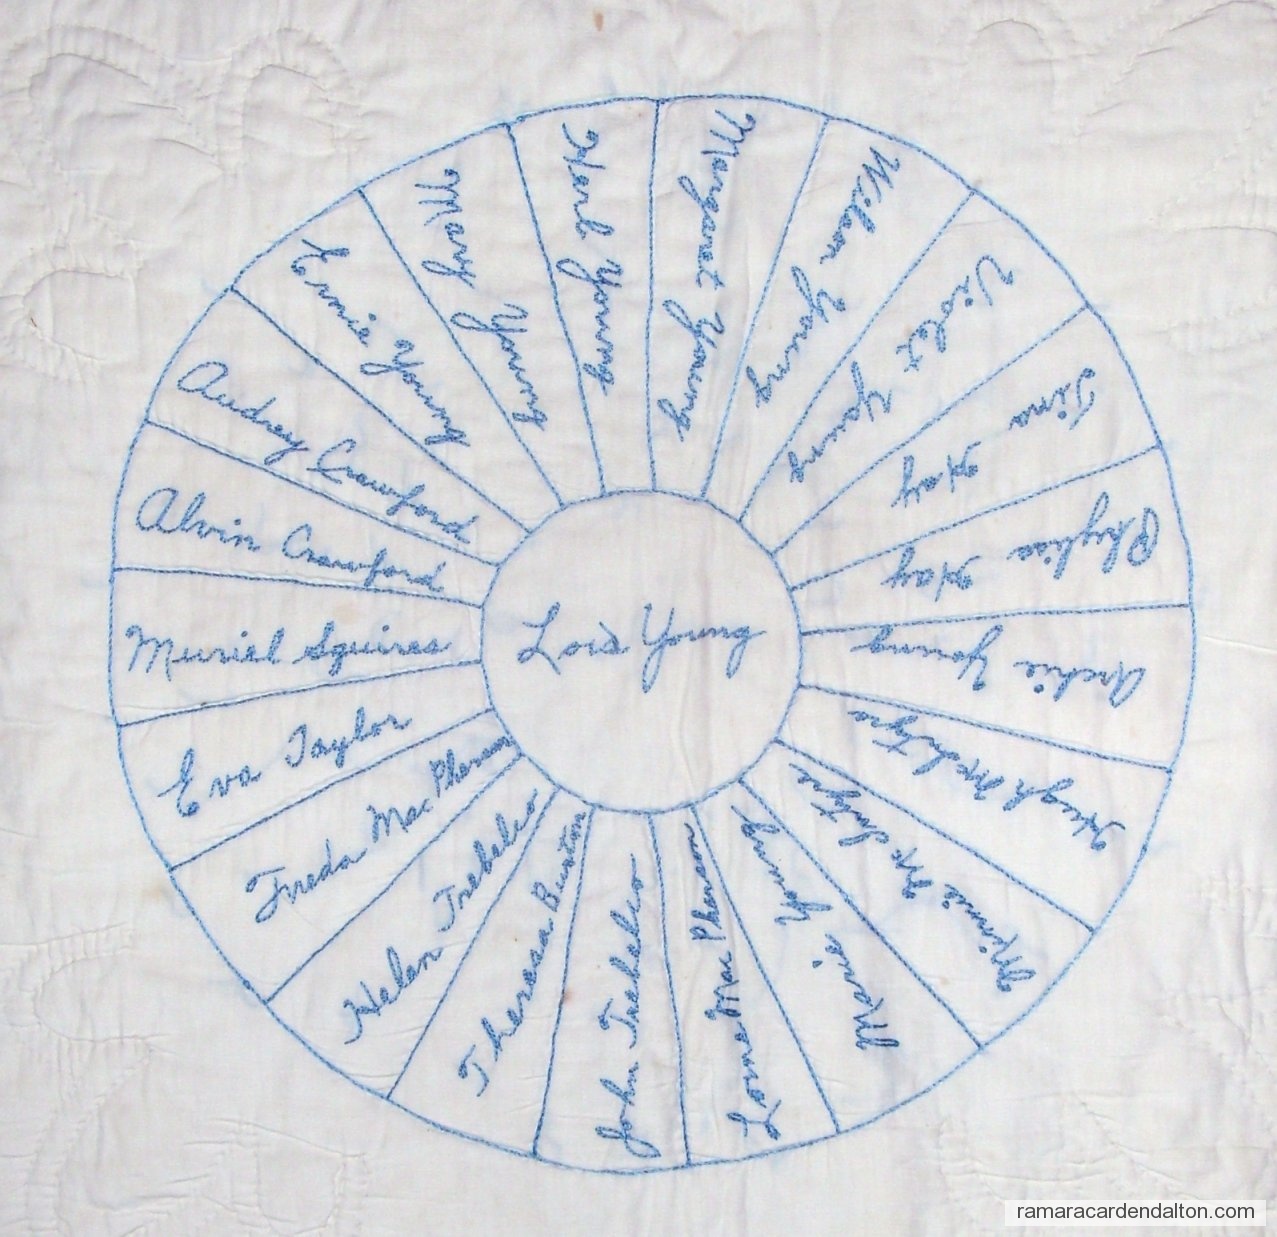 Lois Young
Margaret Young
Wilson Young
Violet Young
Tina Hay
Phyliss Hay
Archie Young
Hugh McIntyre
Minnie McIntyre
Marie Young
Lorne MacPherson
John Trebelco
Theresa Burton
Helen Trebelco
Freda MacPherson
Eva Taylor
Muriel Squires
Alvin Crawford
Audrey Crawford
Ernie Young
Mary Young
Young
ramaracardendalton.com